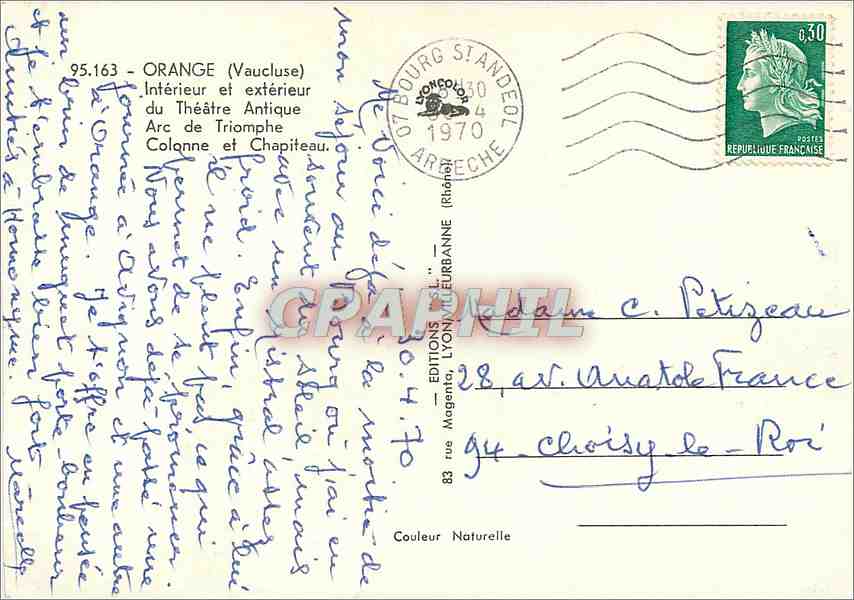 95.163 - ORANGE (Vaucluse)
Intérieur et extérieur
du Théâtre Antique
Arc de Triomphe
Colonne et Chapiteau.
07 BOURG ST ANDEOL
30
4
1970
ARDECHE
LYONCOLOR
0,30
POSTES
REPUBLIQUE FRANÇAISE
30.4.70
Me voici déjà à la moitié de
mon séjour au Bourg où j'ai eu
souvent du soleil mais
avec un mistral assez
froid. Enfin, grâce à lui
il ne pleut pas ce qui
permet de se promener.
Nous avons déjà passé une
journée à Avignon et une autre
à Orange. Je t'offre en pensée
un brin de muguet porte-bonheur
et je t'embrasse bien fort.
Amitiés à
Marcelle
— EDITIONS "S.L." —
83 rue Magenta, LYON-VILLEURBANNE (Rhône)
CPAPHIL
Madame C. Petizeau
28, av. Anatole France
94 - Choisy-le-Roi
Couleur Naturelle